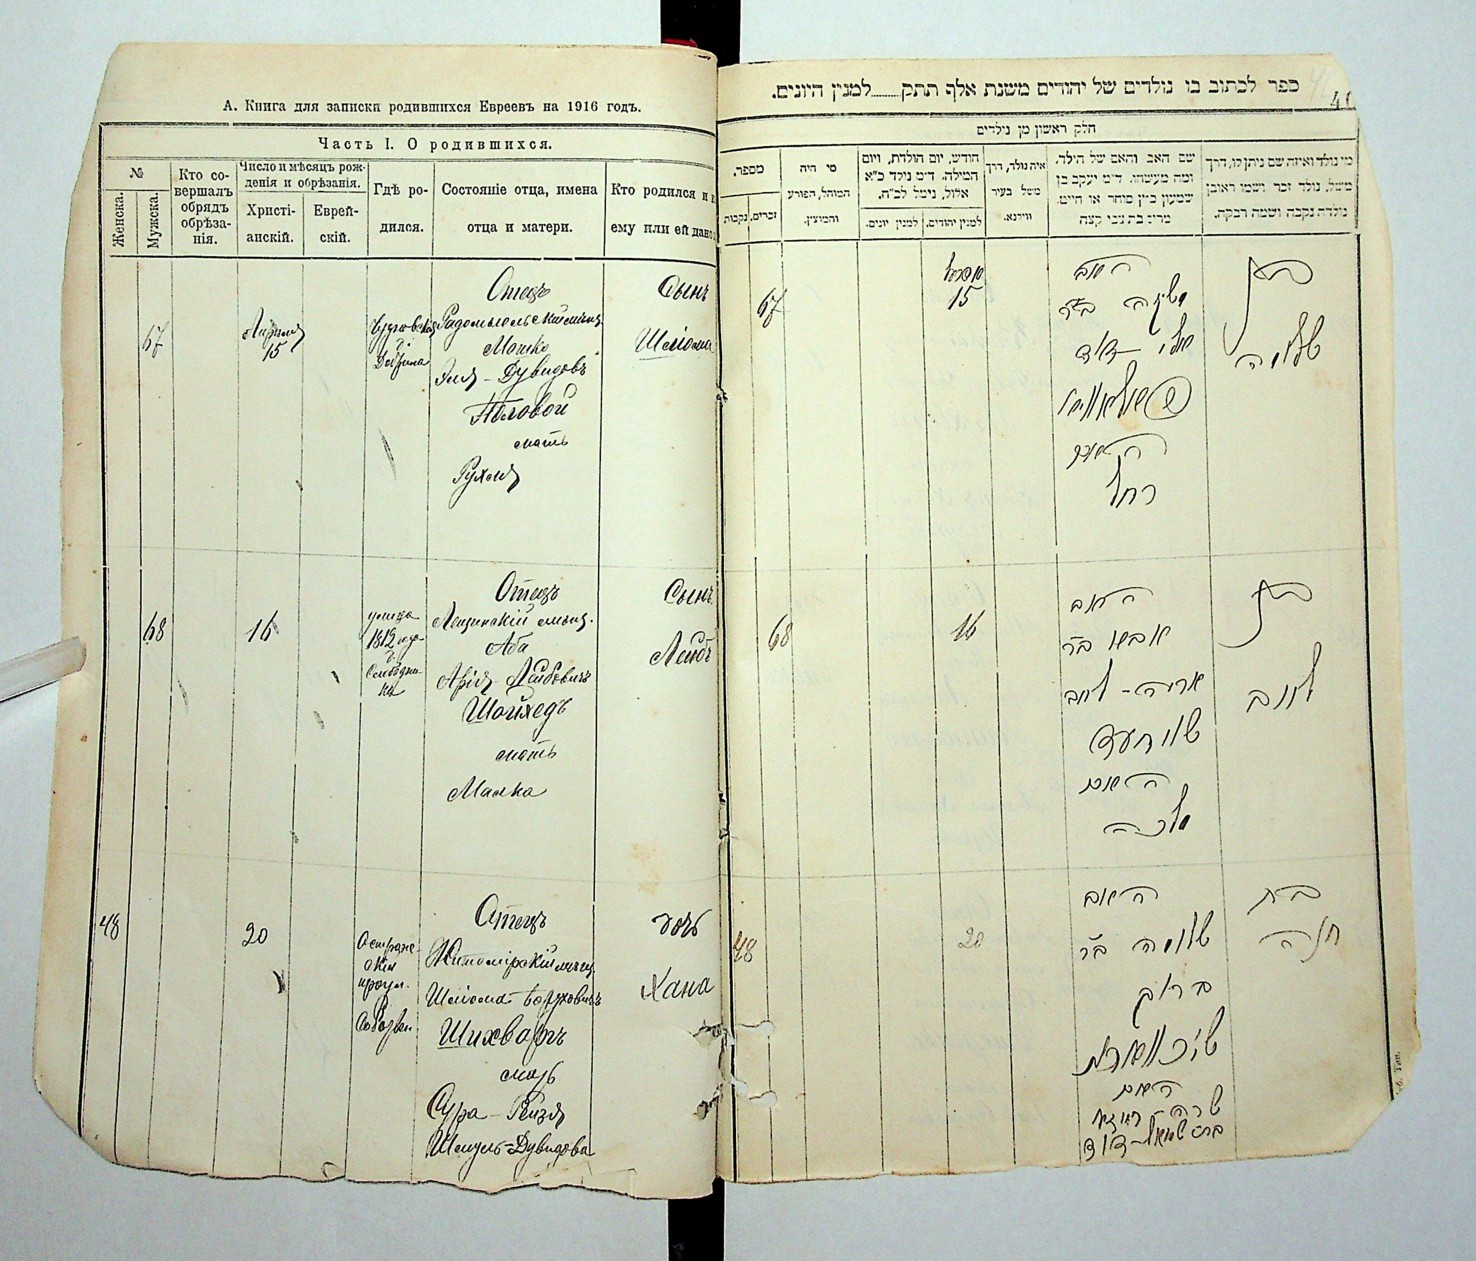 А. Книга для записки родившихся Евреевъ на 1916 годъ.
Часть I. О родившихся.
№
Женска.
Мужска.
Кто со-
вершалъ
обрядъ
обрѣза-
нія.
Число и мѣсяцъ рож-
денія и обрѣзанія.
Христі-
анскій.
Еврей-
скій.
Гдѣ ро-
дился.
Состояніе отца, имена
отца и матери.
Кто родился и
ему или ей дано
67
Апрѣля
15
Отецъ
Радомысльскій мѣщ.
Мошко
Эля-Дувидовъ
Полевой
мать
Рухля
Сынъ
Шлёома
68
16
улица
1812 года
Отецъ
мѣщ.
Аба
Арія-Лейбовичъ
Шойхедъ
мать
Малка
Сынъ
Лейбъ
48
20
Отецъ
Житомірскій мѣщ.
Шлёома Боруховичъ
Шихваргъ
мать
Сура-Рейзя
Шмуль-Дувидова
дочь
Хана
ספר לכתוב בו נולדים של יהודים משנת אלף תתק........למנין היונים.
חלק ראשון מן נולדים
מספר.
זכרים.
נקבות
מי היה
המוהל, הפורע
והמוצץ.
חודש, יום הולדת, ויום
המילה. ד״מ נולד כ״א
אלול, נימל לכ״ה.
למנין יהודים.
למנין יונים.
איה נולד, דרך
משל בעיר
ווירנא.
שם האב והאם של הילד.
ומה מעשהו. ד״מ יעקב בן
שמעון כיין סוחר או חייט.
מרים בת צבי קצה
מי נולד ואיזה שם ניתן לו, דרך
משל, נולד זכר ושמו ראובן
נולדה נקבה ושמה רבקה.
67
אפריל
15
האב
משה ב״ר
אלי-דוד
האם
רחל
בן
שלמה
68
16
האב
אבא ב״ר
אריה-ליוב
שויחעד
האם
מלכה
בן
ליוב
48
20
האב
שלמה ב״ר
ברוך
שיכווארג
האם
שרה רייזא
בת שמואל-דוד
בת
חנה